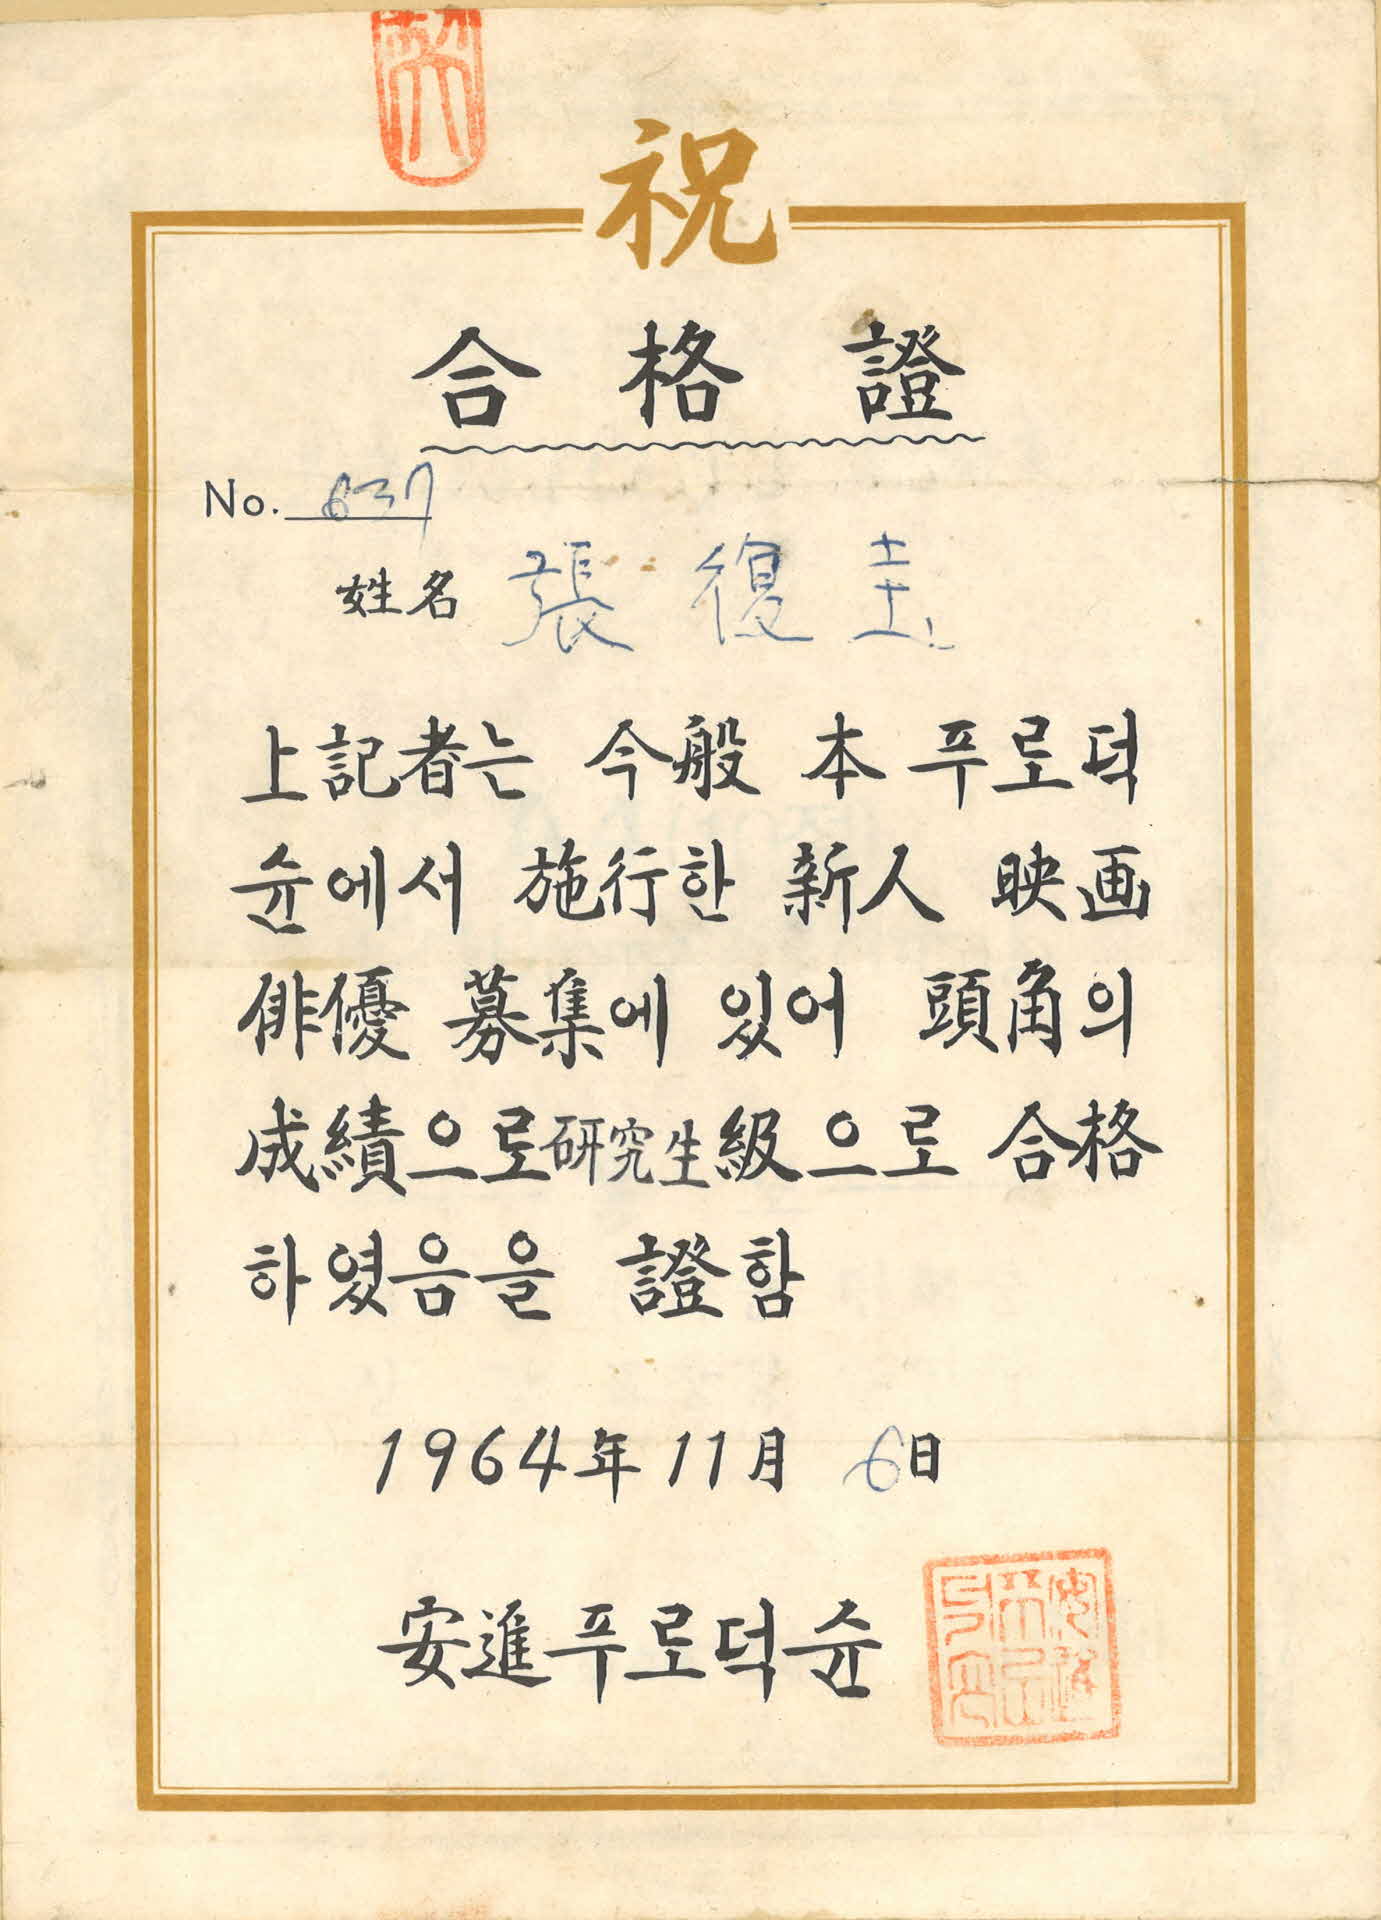 祝
合格證
No. 637
姓名 張復圭
上記者는 今般 本 푸로덕
슌에서 施行한 新人 映画
俳優 募集에 있어 頭角의
成績으로 研究生級으로 合格
하였음을 證함
1964年 11月 6日
安進푸로덕슌